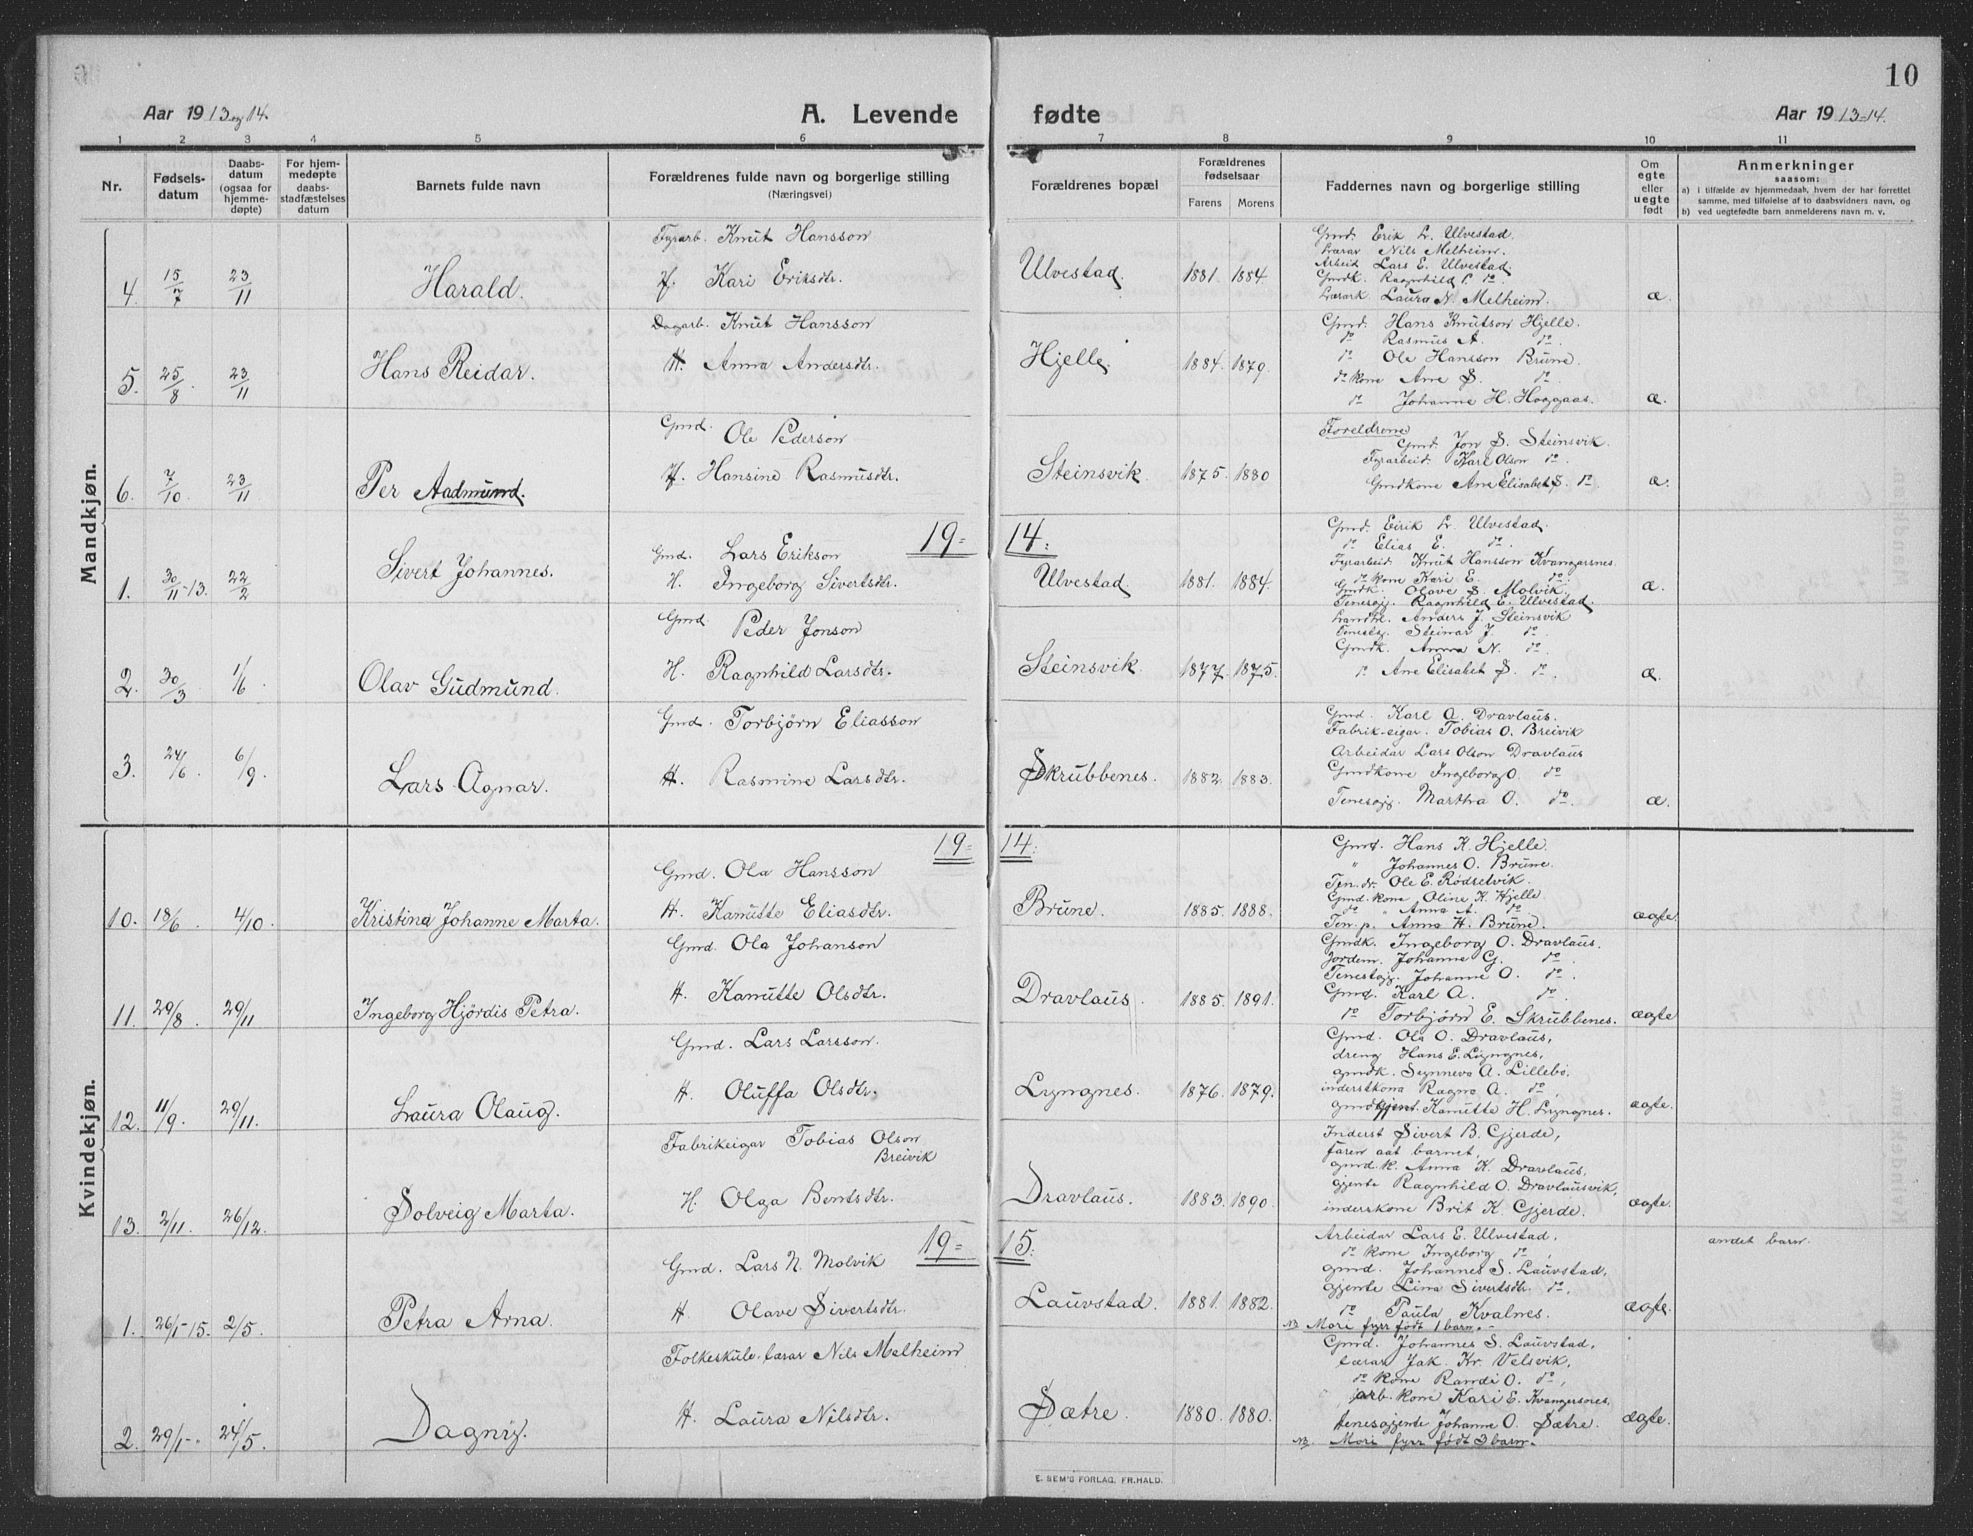 10
Aar 1913 og 14.
A. Levende fødte
Aar 1913-14.
1 2 3 4 5 6 7 8 9 10 11
Nr.
Fødsels-
datum
Daabs-
datum
(ogsaa for
hjemme-
døpte)
For hjem-
medøpte
daabs-
stadfæstelses
datum
Barnets fulde navn
Forældrenes fulde navn og borgerlige stilling
(Næringsvei)
Forældrenes bopæl
Forældrenes
fødselsaar
Farens Morens
Faddernes navn og borgerlige stilling
Om
egte
eller
uegte
født
Anmerkninger
saasom:
a) i tilfælde av hjemmedaab, hvem der har forrettet
samme, med tilføielse af to daabsvidners navn, og
b) ved uegtefødte barn anmelderens navn m. v.
Mandkjøn.
4. 15/7 23/11 Harald.
Fyrarb. Knut Hansson
H. Kari Eriksdtr.
Ulvestad. 1881. 1884.
Gmd. Erik L. Ulvestad.
Lærar Nils Melheim.
Arbeid Lars E. Ulvestad
Gmdk. Ragnhild do.
Lærark. Laura N. Melheim. æ
5. 25/8 23/11 Hans Reidar.
Dagarb. Knut Hansson
H. Anna Andersdtr.
Hjelle. 1884. 1879.
Gmd. Hans Knutson Hjelle.
do Rasmus A. do.
do Ole Hansson Brune.
do kone Ane S. do.
do Johanne H. Haggaas. æ.
6. 7/10. 23/11 Per Aadmund.
Gmd. Ole Pederson
H. Hansine Rasmusdtr.
Steinsvik 1875. 1880
Foreldrene
Gmd. Jon S. Steinsvik.
Fyrarbeid. Karl Olson do.
Gmdkone Ane Elisabet S. do æ.
19=14:
1. 30/11-13. 22/2 Sivert Johannes.
Gmd. Lars Erikson
H. Ingeborg Sivertsdtr.
Ulvestad 1881. 1884.
Gmd. Eirik L. Ulvestad.
do Elias E. do.
Fyrarbeid Knut Hansson Kvangarsnes.
do kone Kari E. do.
Gmdk. Olave S. Molvik.
Tenesgj. Ragnhild E. Ulvestad. æ.
2. 30/3 1/6. Olav Gudmund.
Gmd. Peder Jonson
H. Ragnhild Larsdtr.
Steinsvik. 1877. 1875.
Landhl. Anders J. Steinsvik
Tenesg. Steinar J. do.
Gmdk. Anna N. do.
do. Ane Elisabet S. do. æ.
3. 24/6. 6/9. Lars Agnar.
Gmd. Torbjørn Eliasson
H. Rasmine Larsdtr.
Skrubbenes. 1882. 1883.
Gmd. Karl A. Dravlaus.
Fabrik-eigar. Tobias O. Breivik
Arbeidar Lars Olson Dravlaus
Gmdkone Ingeborg O. do
Tenesgj. Martha O. do. æ.
Kvindekjøn.
19=14:
10. 18/6. 4/10. Kristina Johanne Marta.
Gmd. Ola Hansson
H. Kanutte Eliasdtr.
Brune. 1885. 1888.
Gmd. Hans K. Hjelle.
" Johannes O. Brune.
Ten.dr. Ole E. Rødsetvik.
Gmd. kone Oline K. Hjelle
do " Anna A. do
Ten. p. Anna H. Brune. ægte
11. 29/8. 29/11 Ingeborg Hjørdis Petra.
Gmd. Ola Johanson
H. Kanutte Olsdtr.
Dravlaus. 1885. 1891.
Gmdk. Ingeborg O. Dravlaus.
Jordem. Johanne G. do.
Tenestgj. Johanne O. do.
Gmd. Karl A. do.
do Torbjørn E. Skrubbenes. ægte
12. 11/9. 29/11. Laura Olaug.
Gmd. Lars Larsson.
H. Oluffa Olsdtr.
Lyngnes. 1876. 1879.
Gmd. Ola O. Dravlaus,
dreng Hans E. Lyngnes,
gmdk. Synneva A. Lillebø,
inderstkona Ragna A. do,
gmdgjent. Kanutte H. Lyngnes. ægte.
13. 2/11. 26/12. Solveig Marta.
Fabrikeigar Tobias Olson
Breivik
H. Olga Bentsdtr.
Dravlaus. 1883. 1890
Inderst Sivert B. Gjerde,
faren aat barnet,
gmd.k. Anna K. Dravlaus,
gjente Ragnhild O. Dravlausvik,
inderskone Brit K. Gjerde. ægte.
19=15:
1. 26/1-15. 2/5. Petra Arna.
Gmd. Lars N. Molvik
H. Olave Sivertsdtr.
Lauvstad. 1881. 1882.
Arbeidar Lars E. Ulvestad,
do kone Ingeborg do,
gmd. Johannes S. Lauvstad,
gjente Lina Sivertsdtr. do,
do Paula Kvalnes. ægte.
NB Mori fyrr født 1 barn.
andet barn.
2. 29/1-. 24/5. Dagny.
Folkeskule-lærar Nils Melheim
H. Laura Nilsdtr.
Sætre. 1880. 1880.
Gmd. Johannes S. Lauvstad,
lærar Jak. Kr. Velsvik,
do kone Randi O. do,
arb. kone Kari E. Kvangersnes,
tenesgjente Johanne O. Sætre. ægte.
NB Mori fyrr født 3 barn.
E. SEM'S FORLAG, FR.HALD.